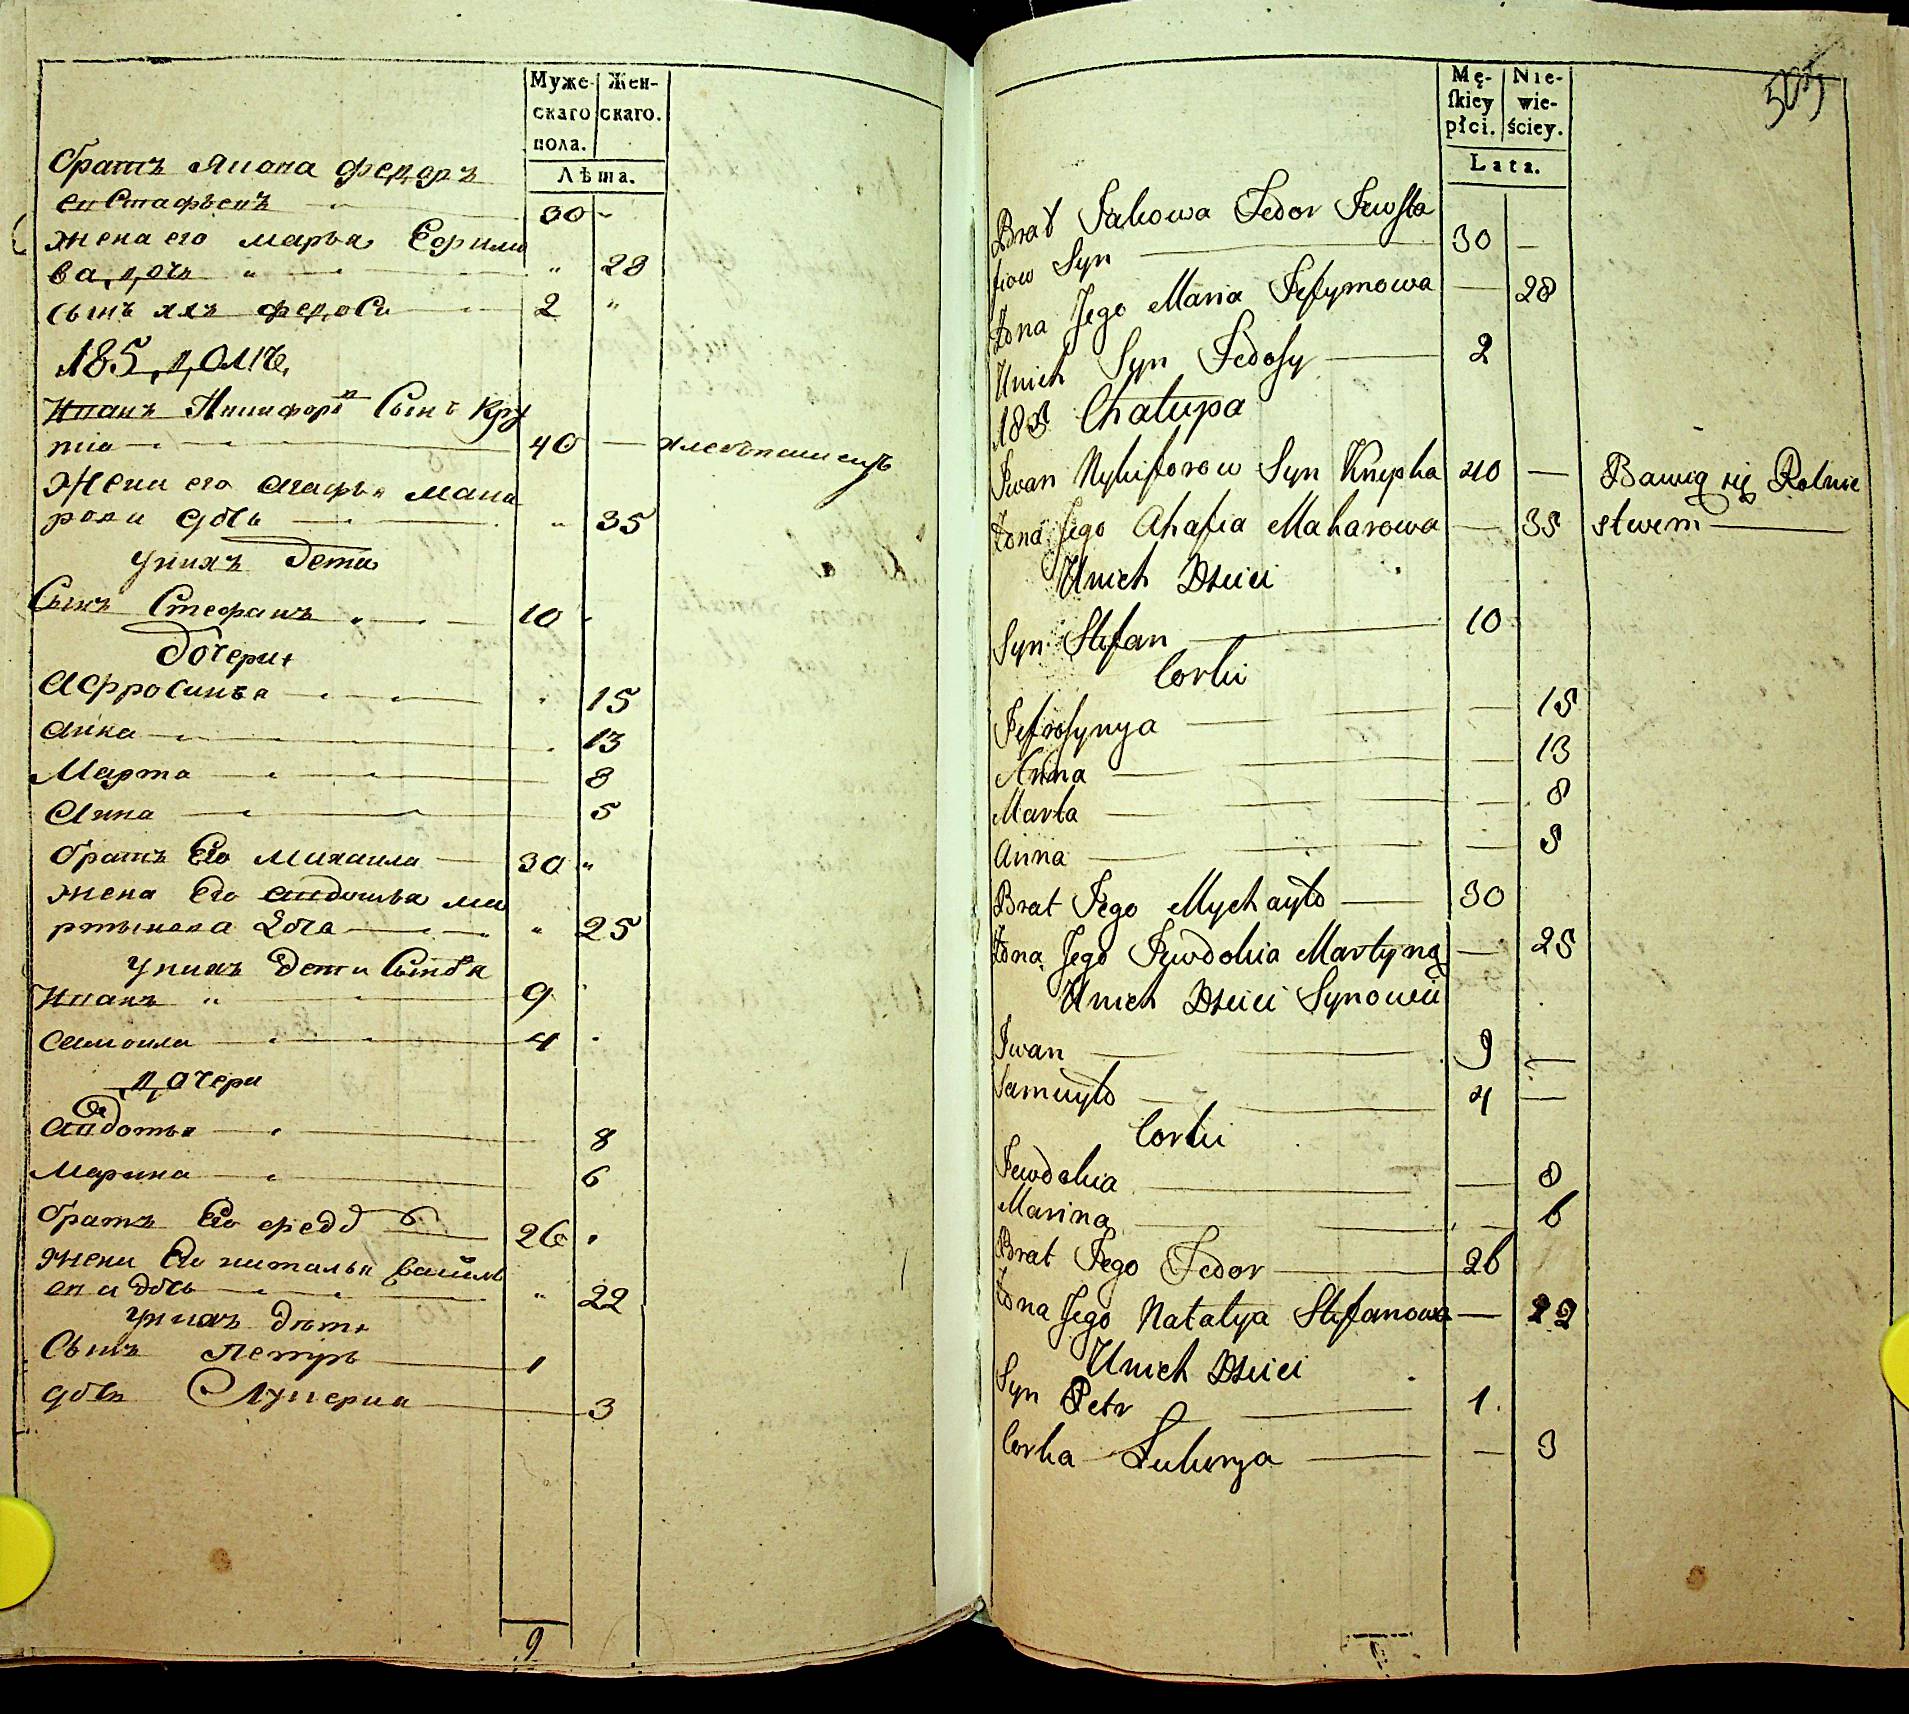 Муже-
скаго
пола.
Жен-
скаго.
Лѣта.
братъ Якова Федоръ
евстафьевъ 30
жена его марья Ефимо
ва дочь " 28
сынъ ихъ федоси 2 "
185 домъ
Иванъ Никифоровъ Сынъ Кну
пка 40 хлебопашецъ
Жена его агафья мака
рова дочь " 35
у нихъ дети
Сынъ Стефанъ 10
дочери
Афросинья 15
анна 13
Марта 8
Анна 5
братъ Его Михаила 30 "
жена Его авдотья ма
ртынова дочь " 25
у нихъ дети Сыновя
Иванъ " 9
самоила 4
дочери
авдотья 8
Марина 6
братъ Его федоръ 26
жена Его наталья
дочь " 22
у нихъ дети
Сынъ Петръ 1
дочь Лукерия 3
9
505
Mę-
ſkiey
płci.
Nie-
wie-
ściey.
Lata.
Brat Jakowa Fedor Jewsta
fiow Syn 30 —
Żona Jego Maria Jefymowa — 28
Unich Syn Fedosy 2
185 Chałupa
Iwan Nykiforow Syn Knypka 40 — Bawią się Rolnic
Żona Jego Ahafia Makarowa — 35 stwem
Unich Dzieci
Syn Stefan 10
Corki
Jefrosynya — 15
Anna — 13
Marta — 8
Anna — 5
Brat Jego Mychayło 30
Żona Jego Jewdokia Martyna — 25
Unich Dzieci Synowie
Iwan 9 —
Samuyło 4 —
Corki
Jewdokia — 8
Marina — 6
Brat Jego Fedor 26
Żona Jego Natalya Stefanowa — 22
Unich Dzieci
Syn Petr 1
Corka Lukerya — 3